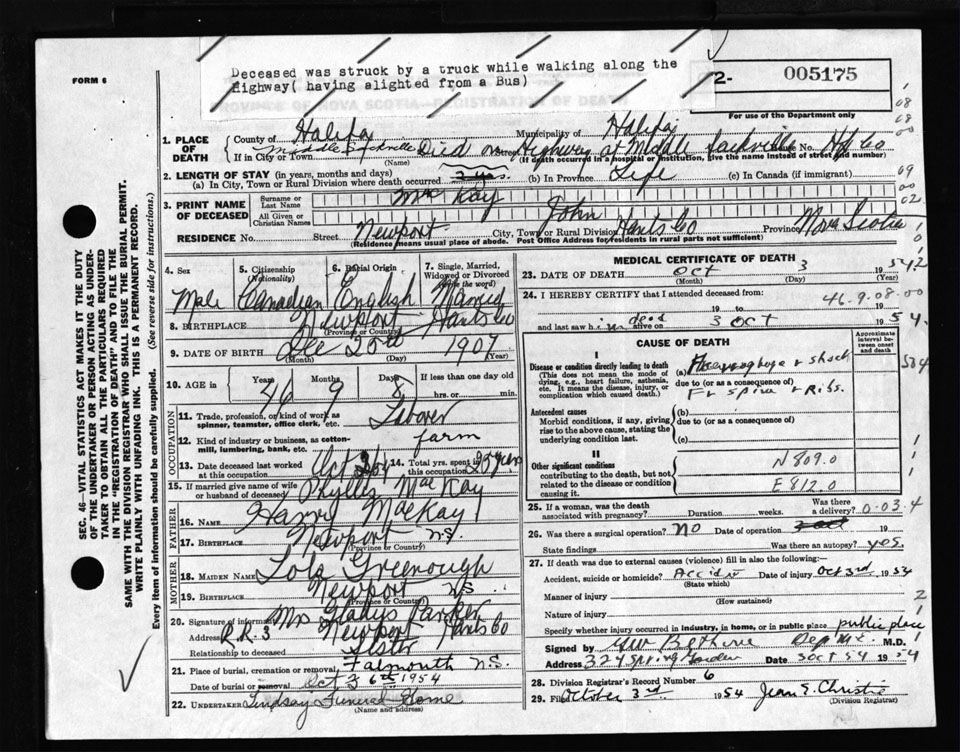 FORM 6
Deceased was struck by a truck while walking along the
Highway( having alighted from a Bus)
2- 005175
PROVINCE OF NOVA SCOTIA—REGISTRATION OF DEATH
For use of the Department only
1. PLACE OF DEATH
County of Halifax Municipality of Halifax
If in City or Town Middle Sackville Died on Street Highway at Middle Sackville House No. Hfx Co
(Name) (If death occurred in a hospital or institution, give the name instead of street and number)
2. LENGTH OF STAY (in years, months and days)
(a) In City, Town or Rural Division where death occurred (b) In Province Life (c) In Canada (if immigrant)
3. PRINT NAME OF DECEASED
Surname or Last Name MacKay
All Given or Christian Names John
RESIDENCE No. Street Newport City, Town or Rural Division Hants Co Province Nova Scotia
(Residence means usual place of abode. Post Office Address for residents in rural parts not sufficient)
4. Sex
Male
5. Citizenship (Nationality)
Canadian
6. Racial Origin
English
7. Single, Married, Widowed or Divorced (Write the word)
Married
8. BIRTHPLACE Newport Hants Co
(Province or Country)
9. DATE OF BIRTH Dec 25th 1907
(Month) (Day) (Year)
10. AGE in Years Months Days If less than one day old
46 9 8 hrs. or min.
OCCUPATION
11. Trade, profession, or kind of work as spinner, teamster, office clerk, etc. Laborer
12. Kind of industry or business, as cotton-mill, lumbering, bank, etc. farm
13. Date deceased last worked at this occupation Oct 2/54
14. Total yrs. spent in this occupation 25 years
15. If married give name of wife or husband of deceased Phyllis MacKay
FATHER
16. NAME Harry MacKay
17. BIRTHPLACE Newport N.S.
(Province or Country)
MOTHER
18. MAIDEN NAME Lola Greenough
19. BIRTHPLACE Newport N.S.
(Province or Country)
20. Signature of informant Mrs Gladys Parker
Address R.R. 3 Newport Hants Co
Relationship to deceased Sister
21. Place of burial, cremation or removal Falmouth N.S.
Date of burial or removal Oct 6th 1954
22. UNDERTAKER Lindsay Funeral Home
(Name and address)
MEDICAL CERTIFICATE OF DEATH
23. DATE OF DEATH Oct 3 1954
(Month) (Day) (Year)
24. I HEREBY CERTIFY that I attended deceased from:
46-9-08-00
19 to 19
and last saw him dead alive on 3 Oct 1954.
CAUSE OF DEATH
Approximate interval between onset and death
I
Disease or condition directly leading to death
(This does not mean the mode of dying, e.g., heart failure, asthenia, etc. It means the disease, injury, or complication which caused death.)
(a) Haemorrhage & shock
due to (or as a consequence of)
Fr spine & Ribs.
Antecedent causes
Morbid conditions, if any, giving rise to the above cause, stating the underlying condition last.
(b)
due to (or as a consequence of)
(c)
II
Other significant conditions contributing to the death, but not related to the disease or condition causing it.
N809.0
E812.0
25. If a woman, was the death associated with pregnancy? Duration weeks. Was there a delivery? 0-03-4
26. Was there a surgical operation? No Date of operation 19
State findings Was there an autopsy? yes.
27. If death was due to external causes (violence) fill in also the following:
Accident, suicide or homicide? Accident Date of injury Oct 3rd 1954
(State which)
Manner of injury
(How sustained)
Nature of injury
Specify whether injury occurred in industry, in home, or in public place public place
Signed by M.D.
Address 324 Spring Garden Date 3 Oct 54 1954
28. Division Registrar's Record Number 6
29. Filed October 3rd 1954 Jean E. Christie
(Division Registrar)
SEC. 46—VITAL STATISTICS ACT MAKES IT THE DUTY
OF THE UNDERTAKER OR PERSON ACTING AS UNDER-
TAKER TO OBTAIN ALL THE PARTICULARS REQUIRED
IN THE "REGISTRATION OF DEATH" AND TO FILE THE
SAME WITH THE DIVISION REGISTRAR WHO SHALL ISSUE THE BURIAL PERMIT.
WRITE PLAINLY WITH UNFADING INK. THIS IS A PERMANENT RECORD.
Every item of information should be carefully supplied. (See reverse side for instructions.)